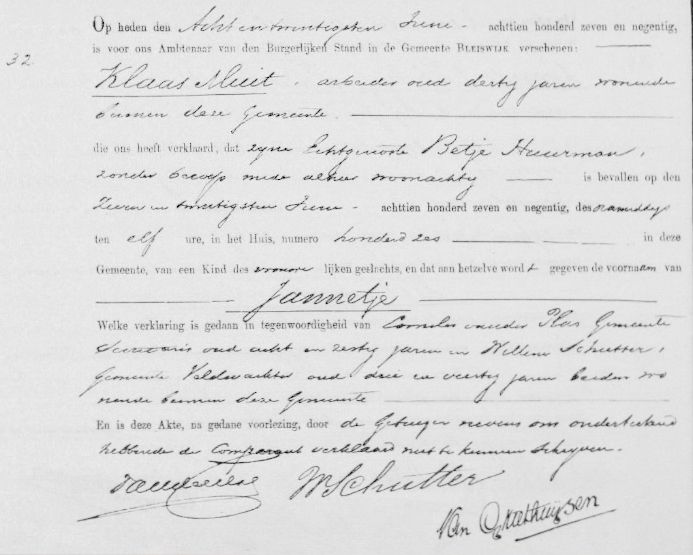 32
Op heden den Acht en twintigsten Juni achttien honderd zeven en negentig,
is voor ons Ambtenaar van den Burgerlijken Stand in de Gemeente BLEISWIJK verschenen:
Klaas Muit, arbeider oud dertig jaren wonende
binnen deze Gemeente.
die ons heeft verklaard, dat zijne Echtgenoote Betje Huurman,
zonder beroep mede alhier woonachtig is bevallen op den
Zeven en twintigsten Juni achttien honderd zeven en negentig, des namiddags
ten elf ure, in het Huis, numero honderd zes in deze
Gemeente, van een Kind des vrouwe lijken geslachts, en dat aan hetzelve word t gegeven de voornaam van
Jannetje
Welke verklaring is gedaan in tegenwoordigheid van Cornelis van der Plas Gemeente
Secretaris oud acht en zestig jaren en Willem Schutter,
Gemeente Veldwachter oud drie en veertig jaren beiden wo
nende binnen deze Gemeente
En is deze Akte, na gedane voorlezing, door de Getuigen nevens ons onderteekend
hebbende de Comparant verklaard niet te kunnen schrijven.
W Schutter
Van